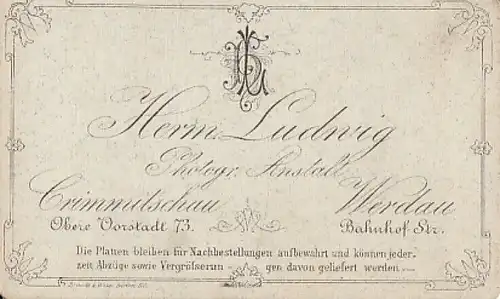 Herm. Ludwig
Photogr. Anstalt
Crimmitschau Werdau
Obere Vorstadt 73. Bahnhof Str.
Die Platten bleiben für Nachbestellungen aufbewahrt und können jeder-
zeit Abzüge sowie Vergröfserun gen davon geliefert werden.